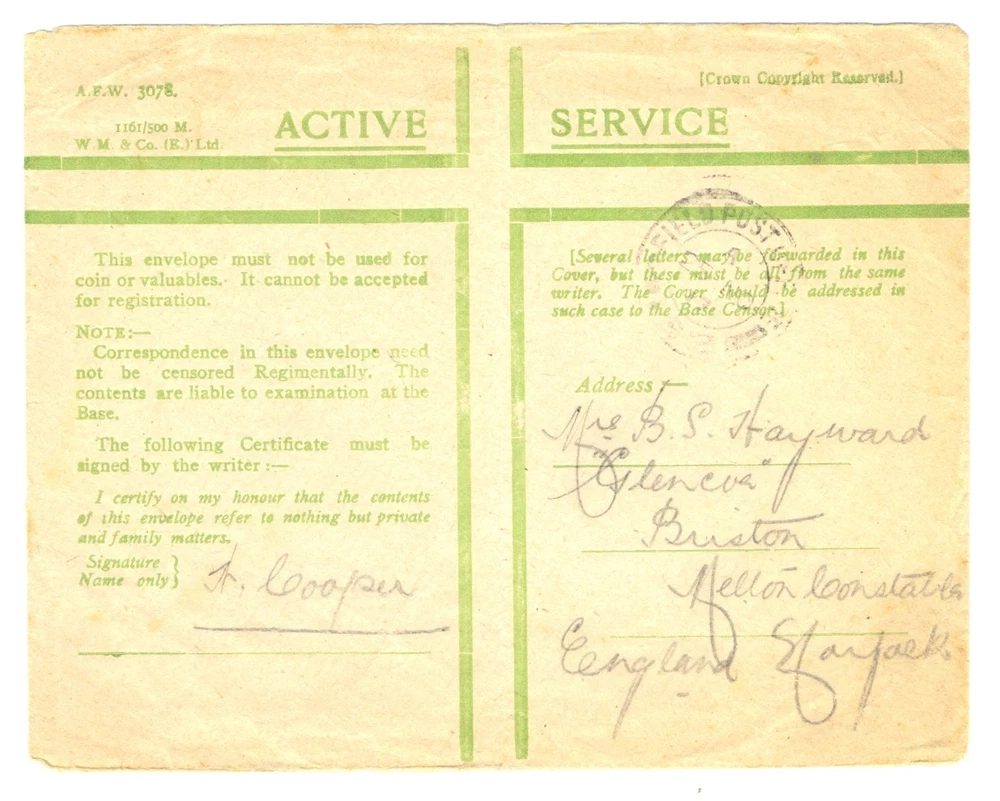 A.F.W. 3078.
1161/500 M.
W.M. & Co. (E.) Ltd.
ACTIVE
This envelope must not be used for
coin or valuables. It cannot be accepted
for registration.
NOTE:—
Correspondence in this envelope need
not be censored Regimentally. The
contents are liable to examination at the
Base.
The following Certificate must be
signed by the writer:—
I certify on my honour that the contents
of this envelope refer to nothing but private
and family matters.
Signature
Name only}
H. Cooper
[Crown Copyright Reserved.]
SERVICE
FIELD POST
[Several letters may be forwarded in this
Cover, but these must be all from the same
writer. The Cover should be addressed in
such case to the Base Censor.]
Address:—
Mrs B. S. Hayward
Briston
Melton Constable
England